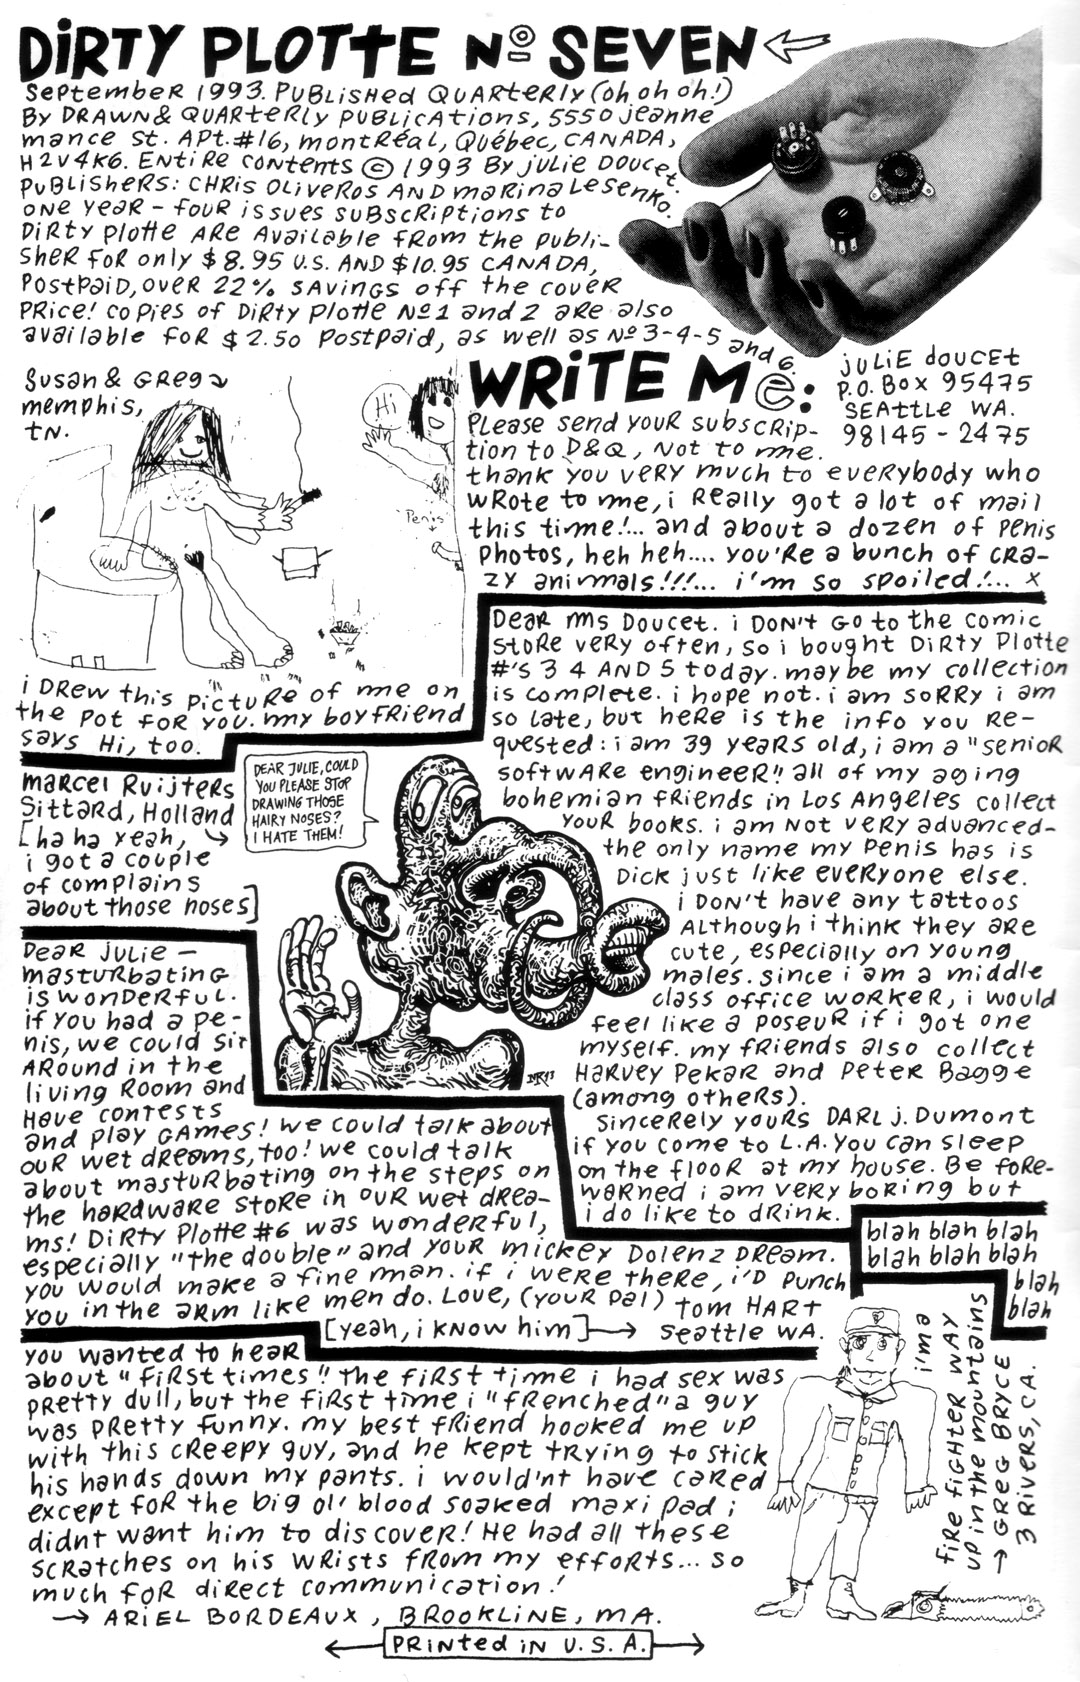 DiRTY PLOTTE No SEVEN
September 1993. Published Quarterly (oh oh oh!)
By Drawn & Quarterly Publications, 5550 Jeanne
mance St. Apt. #16, Montréal, Québec, Canada,
H2V4K6. Entire contents © 1993 By Julie Doucet.
Publishers: Chris Oliveros and Marina Lesenko.
One year - four issues subscriptions to
Dirty Plotte are available from the publi-
sher for only $8.95 U.S. and $10.95 Canada,
Postpaid, over 22% savings off the cover
price! Copies of Dirty Plotte No 1 and 2 are also
available for $2.50 postpaid, as well as No 3-4-5 and 6.
WRiTE Me:
Julie Doucet
P.O. Box 95475
Seattle WA.
98145-2475
Please send your subscrip-
tion to D&Q, not to me.
thank you very much to everybody who
wrote to me, i really got a lot of mail
this time!... and about a dozen of penis
photos, heh heh.... you're a bunch of cra-
zy animals!!!... i'm so spoiled!... x
Susan & Greg
memphis,
TN.
Hi
Penis
i drew this picture of me on
the pot for you. my boyfriend
says Hi, too.
Marcel Ruijters
Sittard, Holland
[ha ha yeah,
i got a couple
of complains
about those noses]
DEAR JULIE, COULD
YOU PLEASE STOP
DRAWING THOSE
HAIRY NOSES?
I HATE THEM!
MR'93
Dear Ms Doucet. i don't go to the comic
store very often, so i bought Dirty Plotte
#'s 3 4 and 5 today. maybe my collection
is complete. i hope not. i am sorry i am
so late, but here is the info you re-
quested: i am 39 years old, i am a "senior
software engineer". all of my aging
bohemian friends in Los Angeles collect
your books. i am not very advanced-
the only name my penis has is
Dick just like everyone else.
i don't have any tattoos
although i think they are
cute, especially on young
males. since i am a middle
class office worker, i would
feel like a poseur if i got one
myself. my friends also collect
Harvey Pekar and Peter Bagge
(among others).
Sincerely yours Darl J. Dumont
if you come to L.A. you can sleep
on the floor at my house. Be fore-
warned i am very boring but
i do like to drink.
Dear Julie -
masturbating
is wonderful.
if you had a pe-
nis, we could sit
around in the
living room and
have contests
and play games! we could talk about
our wet dreams, too! we could talk
about masturbating on the steps on
the hardware store in our wet drea-
ms! Dirty Plotte #6 was wonderful,
especially "the double" and your mickey Dolenz dream.
you would make a fine man. if i were there, i'd punch
you in the arm like men do. Love, (your pal) Tom Hart
[yeah, i know him] Seattle WA.
blah blah blah
blah blah blah
blah
blah
you wanted to hear
about "first times". the first time i had sex was
pretty dull, but the first time i "frenched" a guy
was pretty funny. my best friend hooked me up
with this creepy guy, and he kept trying to stick
his hands down my pants. i would'nt have cared
except for the big ol' blood soaked maxi pad i
didnt want him to discover! He had all these
scratches on his wrists from my efforts... so
much for direct communication!
Ariel Bordeaux, Brookline, MA.
i'm a
fire fighter way
up in the mountains
Greg Bryce
3 Rivers, CA.
Printed in U.S.A.